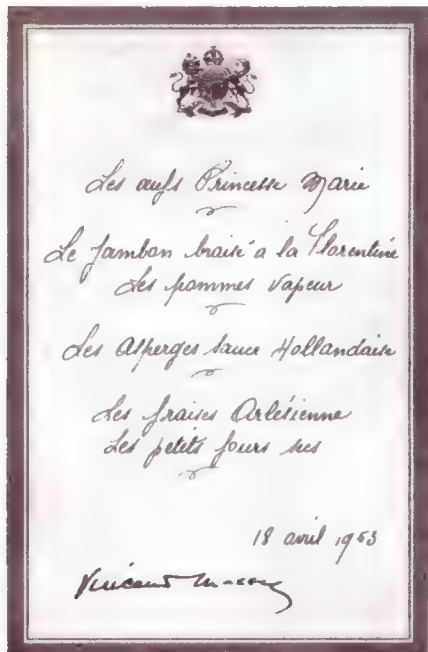 Les œufs Princesse Marie
Le Jambon braisé a la Florentine
Les pommes vapeur
Les Asperges sauce Hollandaise
Les fraises Arlésienne
Les petits fours secs
18 avril 1953
Vincent